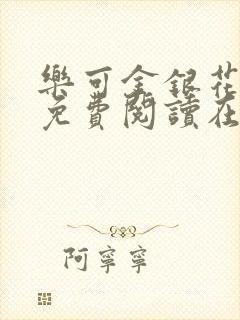 樂可金銀花
免費閱讀在
阿寧寧